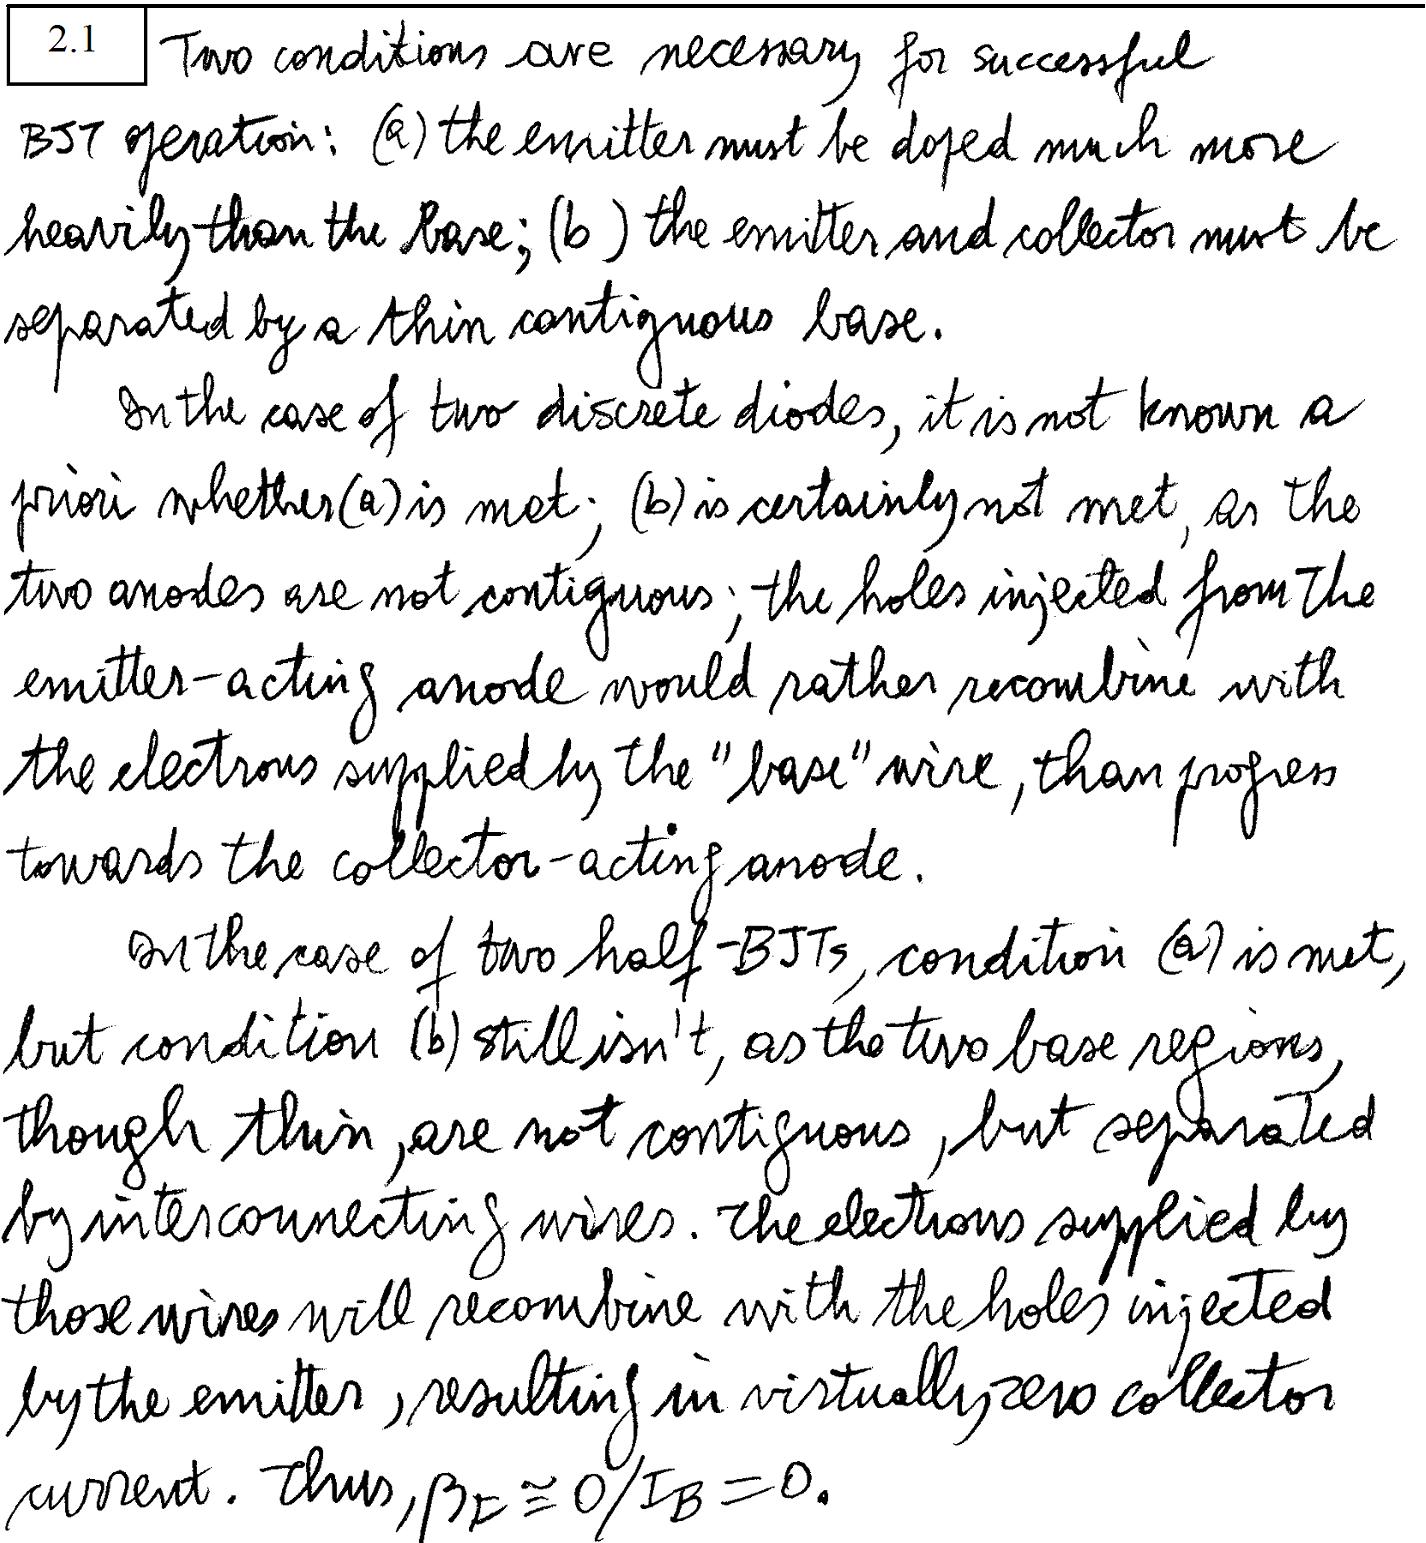 2.1 Two conditions are necessary for successful
BJT operation: (a) the emitter must be doped much more
heavily than the base; (b) the emitter and collector must be
separated by a thin contiguous base.
In the case of two discrete diodes, it is not known a
priori whether (a) is met; (b) is certainly not met, as the
two anodes are not contiguous; the holes injected from the
emitter-acting anode would rather recombine with
the electrons supplied by the "base" wire, than progress
towards the collector-acting anode.
In the case of two half-BJTs, condition (a) is met,
but condition (b) still isn't, as the two base regions,
though thin, are not contiguous, but separated
by interconnecting wires. The electrons supplied by
those wires will recombine with the holes injected
by the emitter, resulting in virtually zero collector
current. Thus, βF ≅ 0/IB = 0.